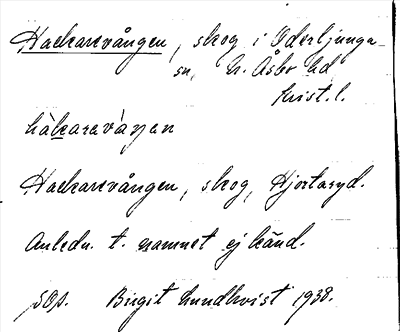 Hackarevången, skog i Oderljunga
sn, N. Åsbo hd
Krist. l.
hàkaravàŋan
Hackarevången, skog, Hjortaryd.
Anledn. t. namnet ej känd.
Birgit Lundkvist 1938.